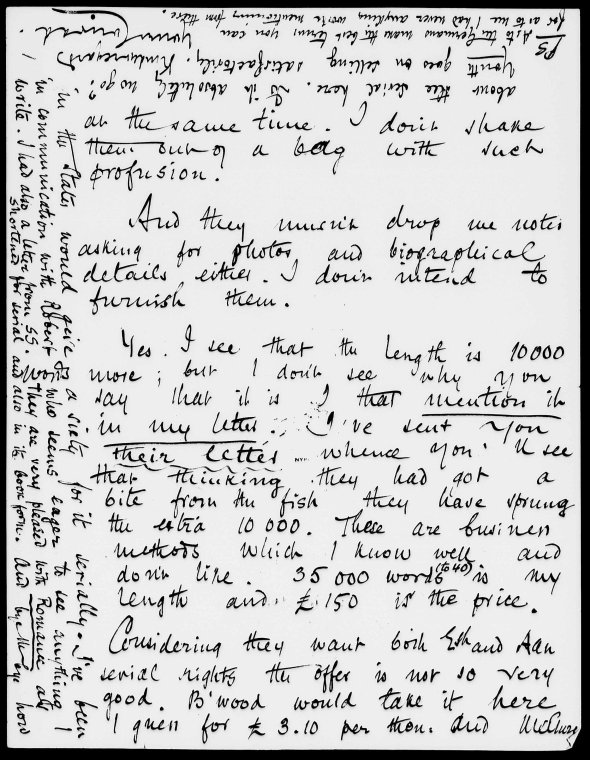 at the same time. I don't shake
them out of a bag with such
profusion.
And they mustn't drop me notes
asking for photos and biographical
details either. I don't intend to
furnish them.
Yes. I see that the length is 10000
more; but I don't see why you
say that it is I that mention it
in my letter. I've sent you
their letter whence you'll see
that thinking they had got a
bite from the fish they have sprung
the extra 10000. These are business
methods which I know well and
don't like. 35000 words (to 40) is my
length and £150 is the price.
Considering they want both and
serial rights the offer is not so very
good. B'wood would take it here
I guess for £ 3.10 per thou: And McClure
in the States would give a sixty for it serially. I've been
in communication with Robert who seems eager to see anything I
write. I had also a letter from SS. They are very pleased with Romance as
shortened for serial and also in its book form. And bye the by how
about the serial here. Is it absolutely no go?
Youth goes on selling satisfactorily. Kindest regards
Yours Conrad.
PS As to the Germans make the best terms you can
for as to me I had never anything worth mentioning from there.